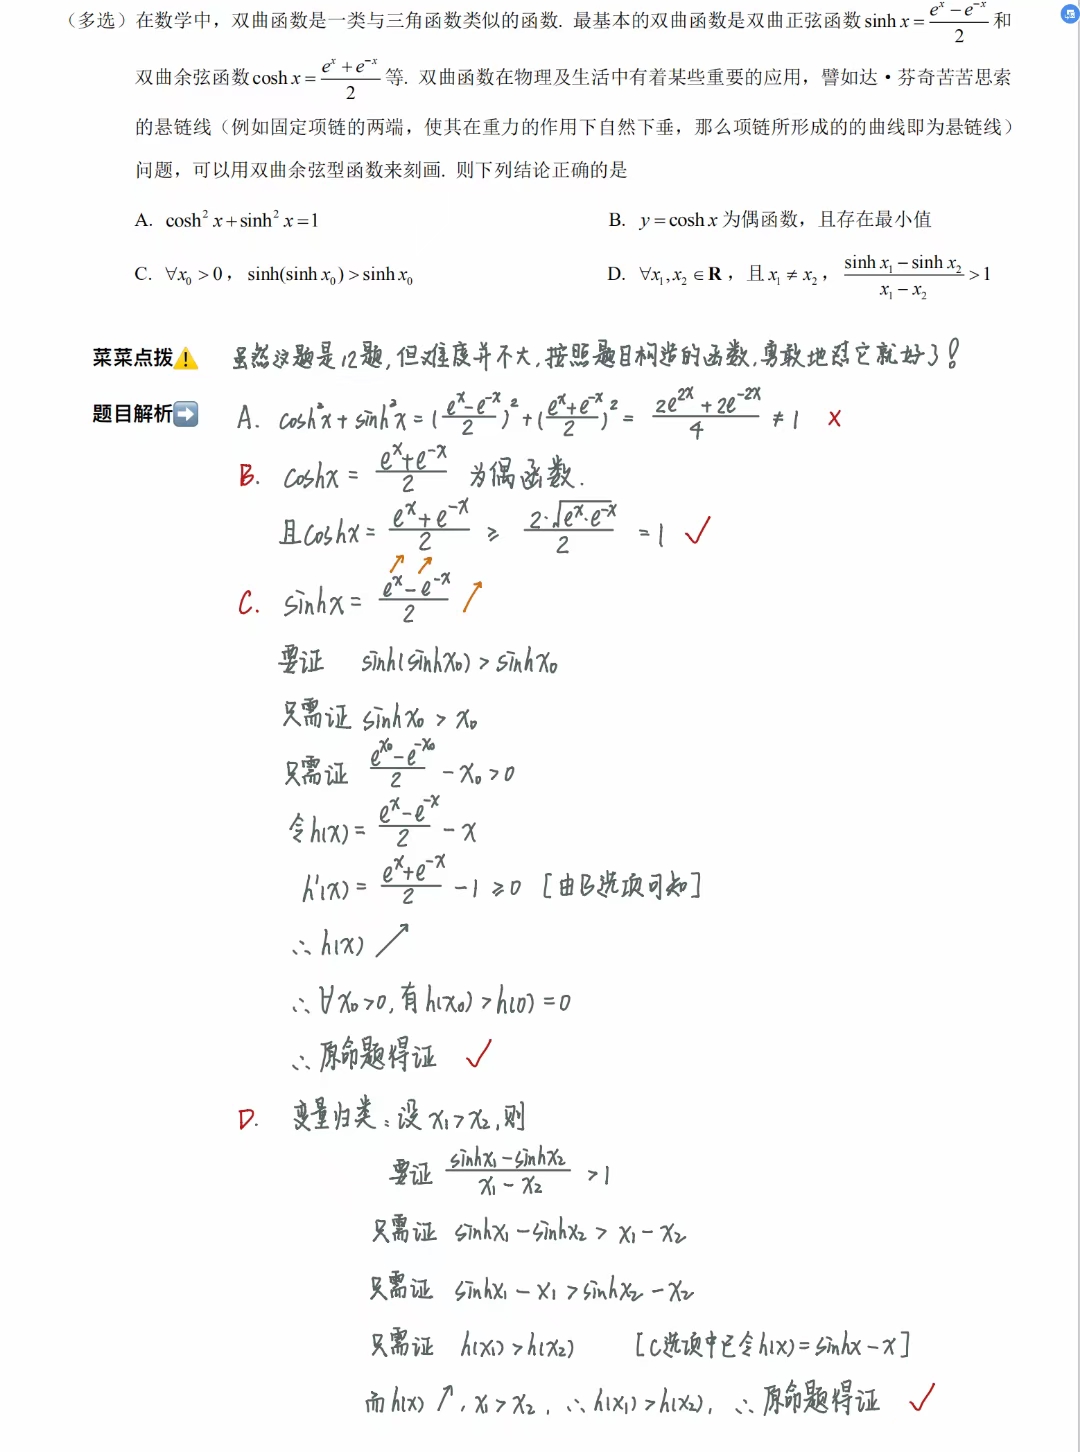 （多选）在数学中，双曲函数是一类与三角函数类似的函数. 最基本的双曲函数是双曲正弦函数 sinh x = (e^x − e^{−x})/2 和
双曲余弦函数 cosh x = (e^x + e^{−x})/2 等. 双曲函数在物理及生活中有着某些重要的应用，譬如达·芬奇苦苦思索
的悬链线（例如固定项链的两端，使其在重力的作用下自然下垂，那么项链所形成的的曲线即为悬链线）
问题，可以用双曲余弦型函数来刻画. 则下列结论正确的是
A. cosh² x + sinh² x = 1 B. y = cosh x 为偶函数，且存在最小值
C. ∀x₀ > 0，sinh(sinh x₀) > sinh x₀ D. ∀x₁, x₂ ∈ R，且 x₁ ≠ x₂，(sinh x₁ − sinh x₂)/(x₁ − x₂) > 1
菜菜点拨⚠️ 虽然这题是12题,但难度并不大,按照题目构造的函数,勇敢地怼它就好了!
题目解析➡️ A. cosh²x + sinh²x = ((e^x − e^{−x})/2)² + ((e^x + e^{−x})/2)² = (2e^{2x} + 2e^{−2x})/4 ≠ 1 ×
B. coshx = (e^x + e^{−x})/2 为偶函数.
且coshx = (e^x + e^{−x})/2 ≥ (2·√(e^x·e^{−x}))/2 = 1 ✓
C. sinhx = (e^x − e^{−x})/2 ↗
要证 sinh(sinhx₀) > sinhx₀
只需证 sinhx₀ > x₀
只需证 (e^{x₀} − e^{−x₀})/2 − x₀ > 0
令h(x) = (e^x − e^{−x})/2 − x
h'(x) = (e^x + e^{−x})/2 − 1 ≥ 0 [由B选项可知]
∴ h(x) ↗
∴ ∀x₀>0,有h(x₀) > h(0) = 0
∴ 原命题得证 ✓
D. 变量归类：设 x₁ > x₂,则
要证 (sinhx₁ − sinhx₂)/(x₁ − x₂) > 1
只需证 sinhx₁ − sinhx₂ > x₁ − x₂
只需证 sinhx₁ − x₁ > sinhx₂ − x₂
只需证 h(x₁) > h(x₂) [C选项中已令h(x) = sinhx − x]
而h(x) ↗, x₁ > x₂, ∴ h(x₁) > h(x₂), ∴ 原命题得证 ✓